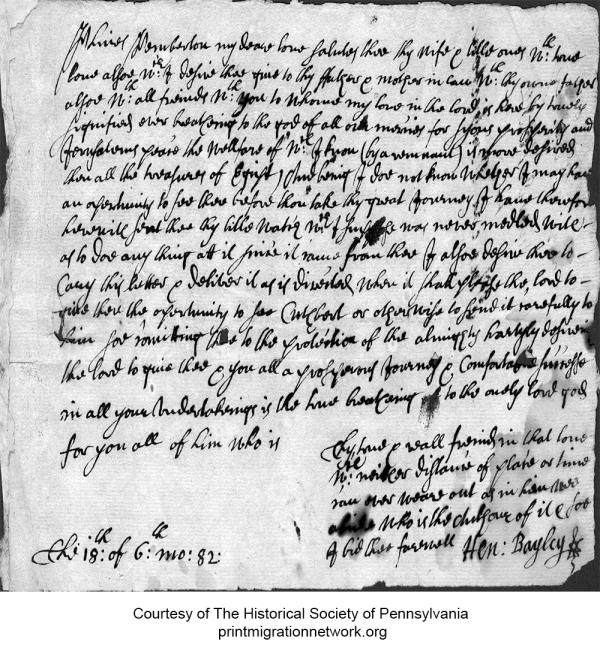 Phines Pemberton my deare love salutes thee thy wife & little ones wth. true
love alsoe wch. I desire thee give to thy father & mother in law wth. thy owne father
alsoe wth. all friends wth. you to whome my love in the lord is hereby truely
signified ever breatheing to the god of all our mercies for Syons prosperity and
Jerusalems peace the wellfare of wch. Is by on (by a remnant) is more desired
then all the treasures of Egypt, And being I doe not know whether I may have
an opertunity to see thee before thou take thy great Journey I have therefore
herewith sent thee thy little wch I was never medled with
as to doe any thing at it since it came from thee I alsoe desire thee to
Carry this letter & deliver it as is directed when it shall please the lord to
give thee the opertunity to see Cuthbert or otherwise to send it carefully to
him soe comitting thee to the protection of the almighty hartyly desireing
the lord to give thee & you all a prosperous Journey & Comfortable successe
in all your Undertakings is the true breatheing to the onely lord god
for you all of him who is
Thy true & reall friend in that love
wch. neither distance of place or time
can ever weare out as in him wee
abide who is the Authour of it & soe
I bid thee farewell Hen: Bayley
The 18th: of 6th: mo: 82:
Courtesy of The Historical Society of Pennsylvania
printmigrationnetwork.org